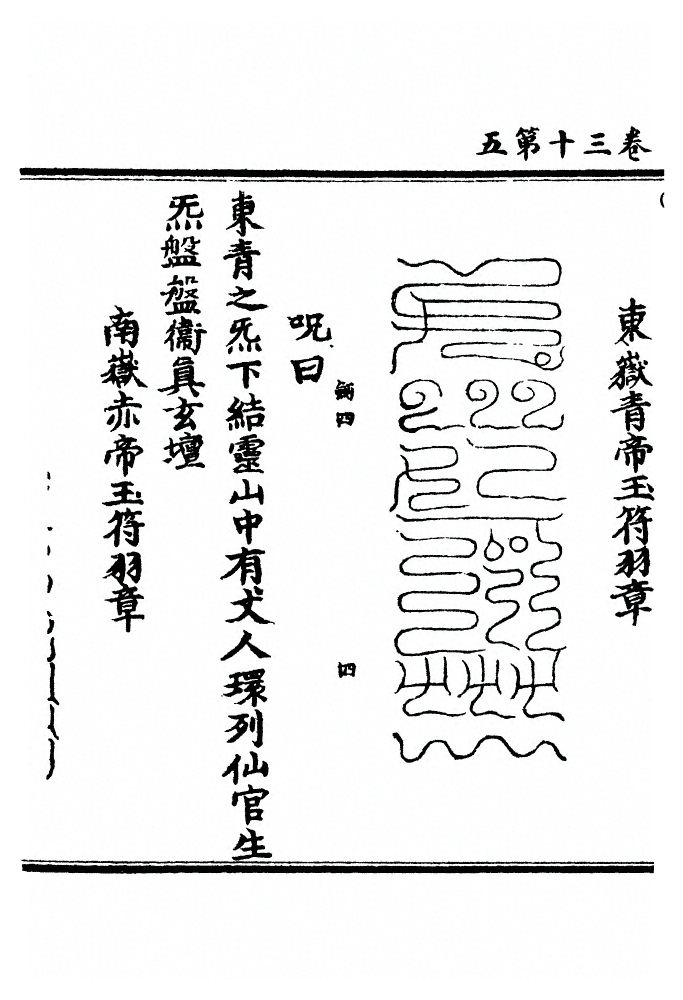 卷三十第五
東嶽青帝玉符羽章
四
四
呪曰
東青之炁下結靈山中有犬人環列仙官生
炁盤盤衞眞玄壇
南嶽赤帝玉符羽章